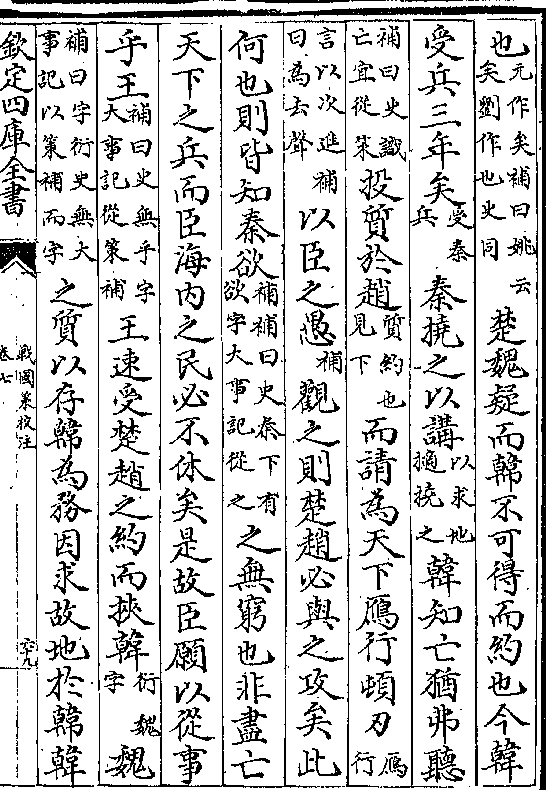 也元作矣補曰姚云矣劉作也史同楚魏疑而韓不可得而約也今韓
受兵三年矣受秦兵秦撓之以講以求地擿撓之韓知亡猶弗聽
補曰史識亡宜從策投質於趙質約也見下而請為天下鴈行頓刃鴈行
言以次進補曰為去聲以臣之愚補觀之則楚趙必與之攻矣此
何也則皆知秦欲補補曰史秦下有欲字大事記從之之無窮也非盡亡
天下之兵而臣海內之民必不休矣是故臣願以從事
乎王補曰史無乎字大事記從策補王速受楚趙之約而挾韓衍魏字魏
補曰字衍史無大事記以策補而字之質以存韓為務因求故地於韓韓
欽定四庫全書
戰國策校注
卷七
六十九